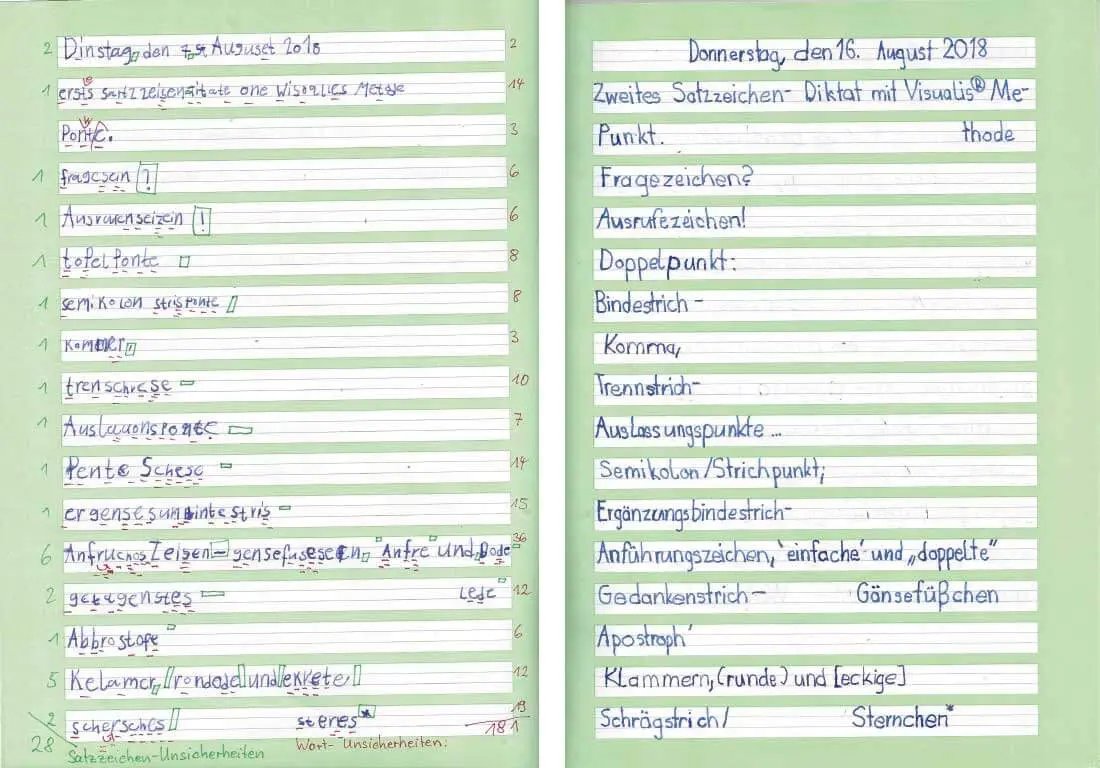 2 Dinstag, den 7. Auguset 2018 2
1 ersts satzzeisen one Wisoalies Metode 14
Ponte. 3
1 fragesein ? 6
1 Ausrauenseizein ! 6
1 tofelponte 8
1 semikolon strisponte 8
1 Kommer, 3
1 trenschrese 10
1 Auslauonsponte 7
1 Pente Schese 14
1 ergensesunbintestris 15
6 Anfruchos Zeisen – gensefuseseen, Anfre und Dode 36
2 getagenstes Lese 12
1 Abbrostofe 6
5 Kelamer, rondode und ekrete 12
2 schersches steres* 13
28 181
Satzzeichen-Unsicherheiten Wort-Unsicherheiten:
Donnerstag, den 16. August 2018
Zweites Satzzeichen- Diktat mit Visualis® Me-
Punkt. thode
Fragezeichen?
Ausrufezeichen!
Doppelpunkt:
Bindestrich -
Komma,
Trennstrich-
Auslassungspunkte ...
Semikolon/Strichpunkt;
Ergänzungsbindestrich-
Anführungszeichen, ‚einfache‘ und „doppelte“
Gedankenstrich – Gänsefüßchen
Apostroph'
Klammern, (runde) und [eckige]
Schrägstrich/ Sternchen*